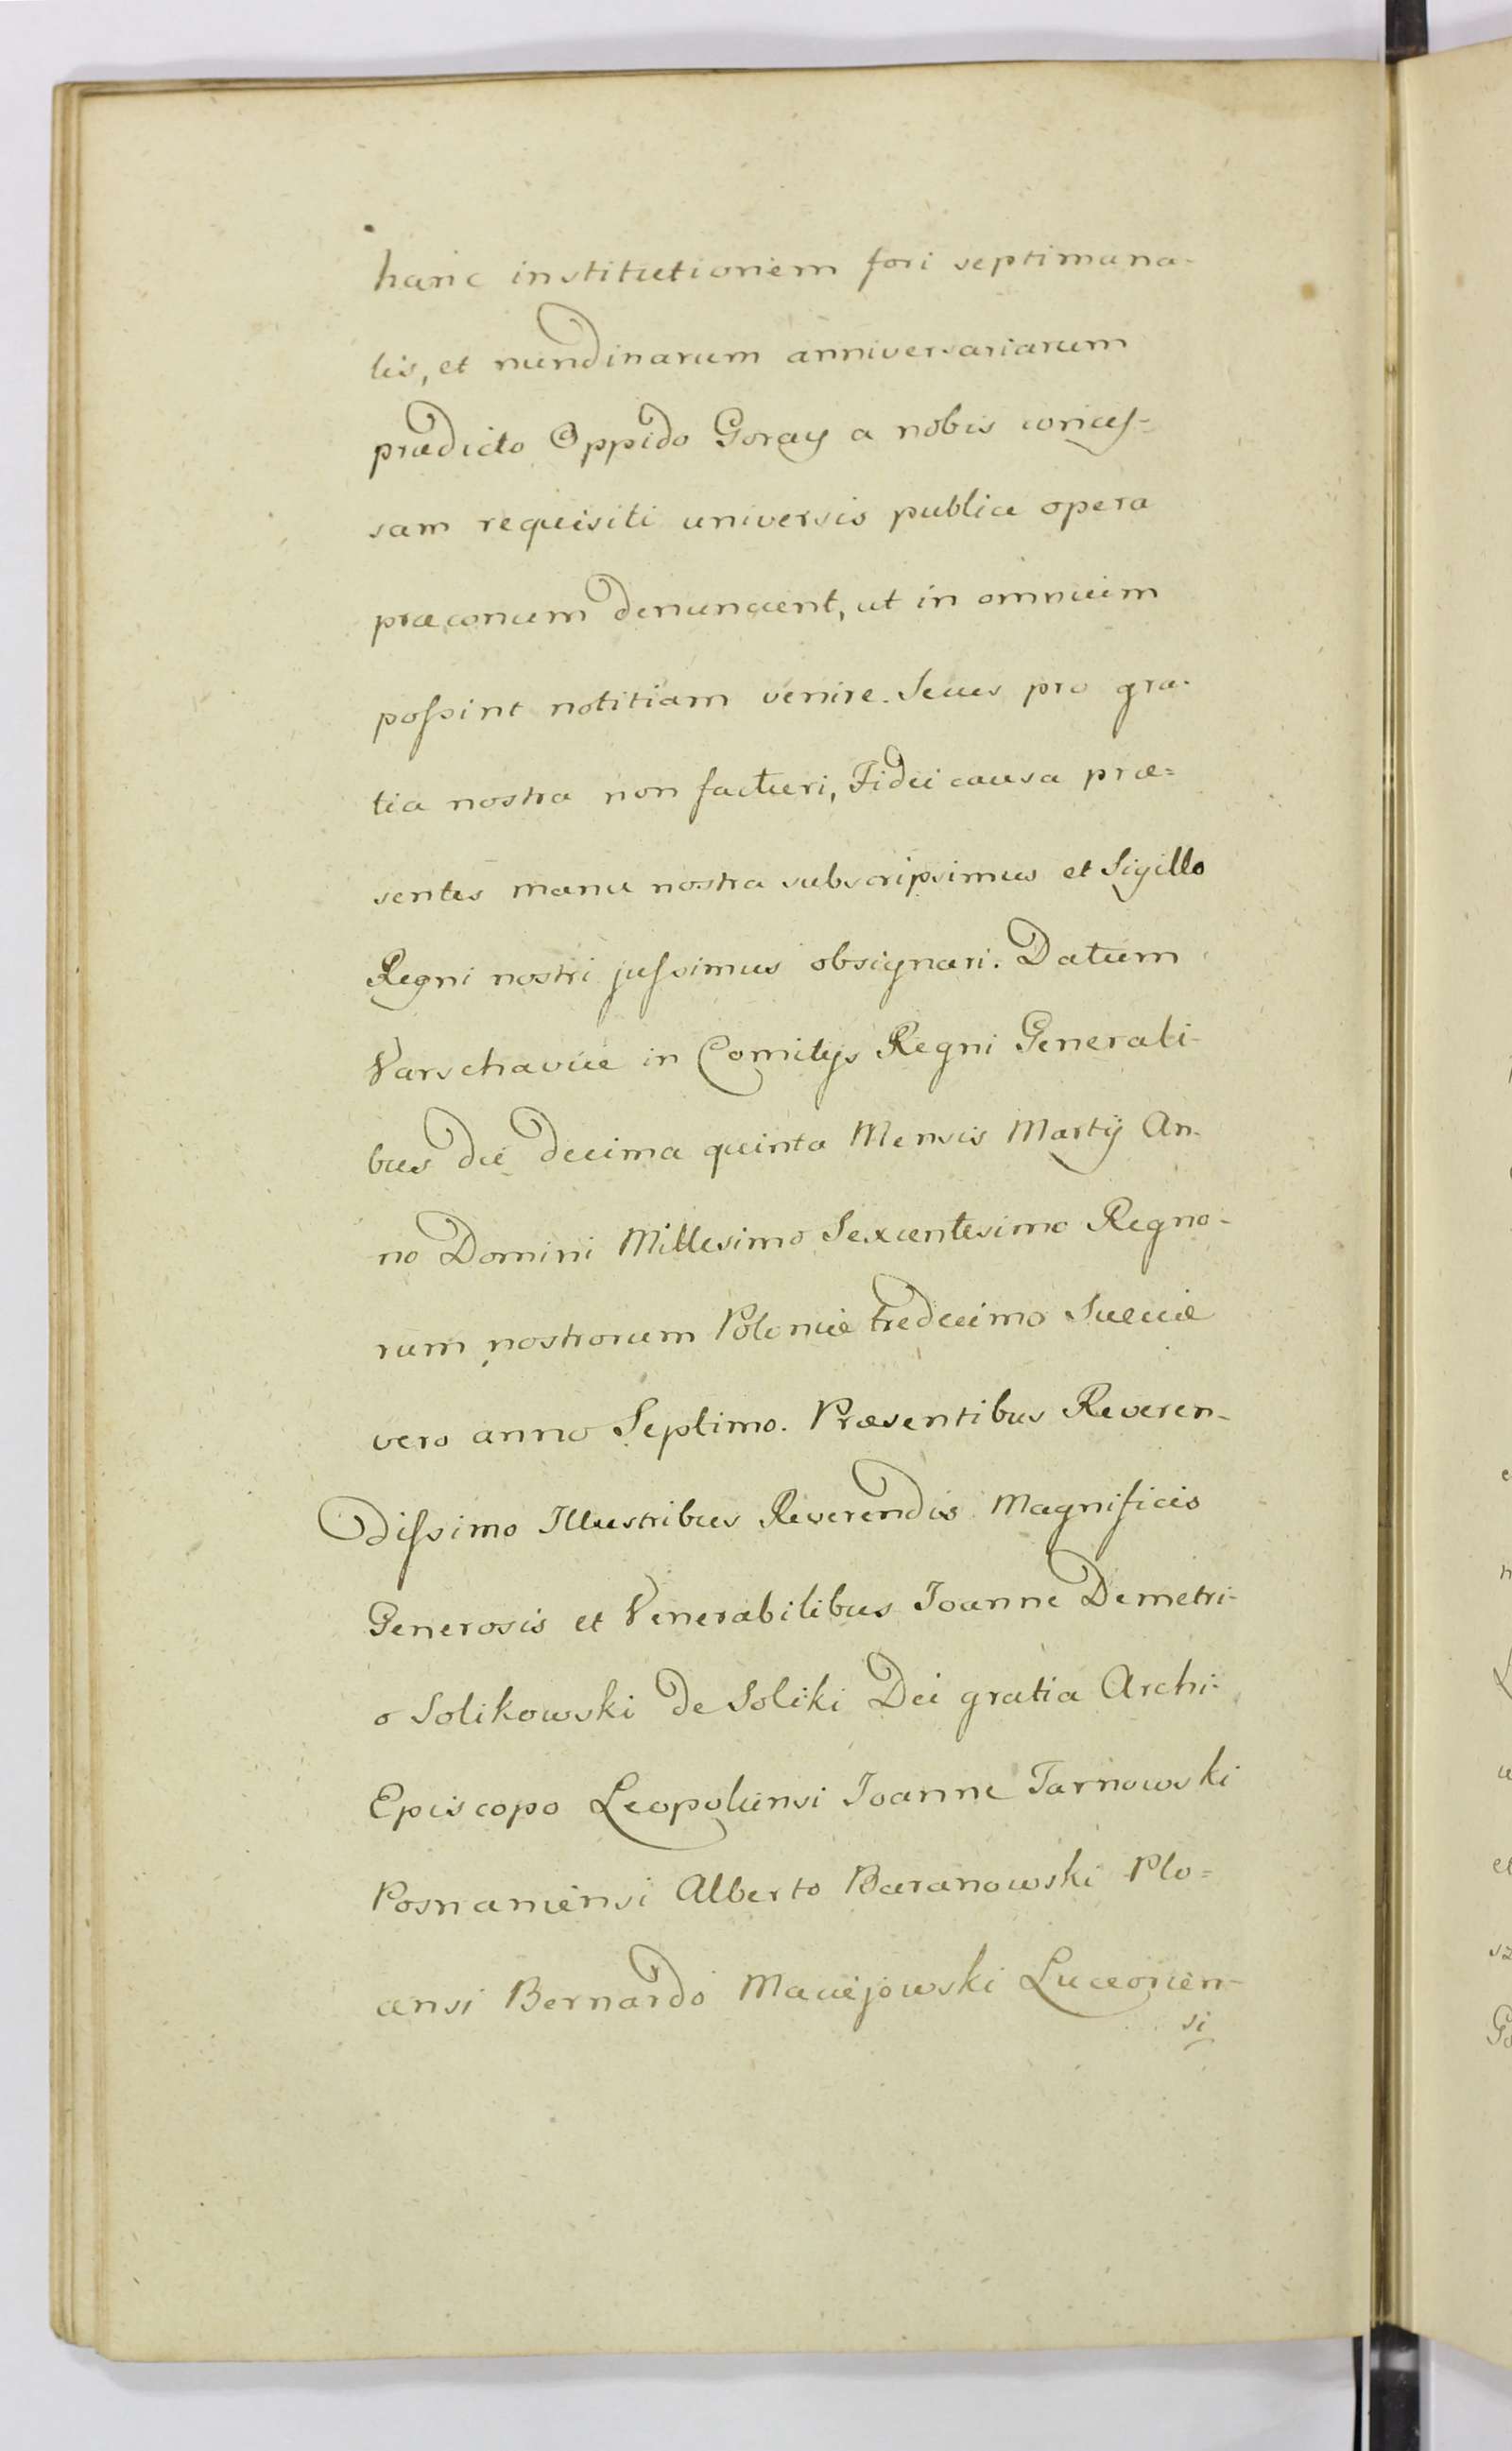 hanc institutionem fori septimana-
lis, et nundinarum anniversariarum
prædicto Oppido Goray a nobis conces-
sam requisiti universis publice opera
præconum denuncient, ut in omnium
possint notitiam venire. Secus pro gra-
tia nostra non facturi, Fidei causa præ=
sentes manu nostra subscripsimus et Sigillo
Regni nostri jussimus obsignari. Datum
Varschaviæ in Comitijs Regni Generali-
bus die decima quinta Mensis Martij An-
no Domini Millesimo Sexcentesimo Regno-
rum nostrorum Poloniæ tredecimo Sueciæ
vero anno Septimo. Præsentibus Reveren-
dissimo Illustribus Reverendis Magnificis
Generosis et Venerabilibus Joanne Demetri-
o Solikowski de Soliki Dei gratia Archi-
Episcopo Leopoliensi Joanne Tarnowski
Posnaniensi Alberto Baranowski Plo=
censi Bernardo Maciejowski Luceorien-
si